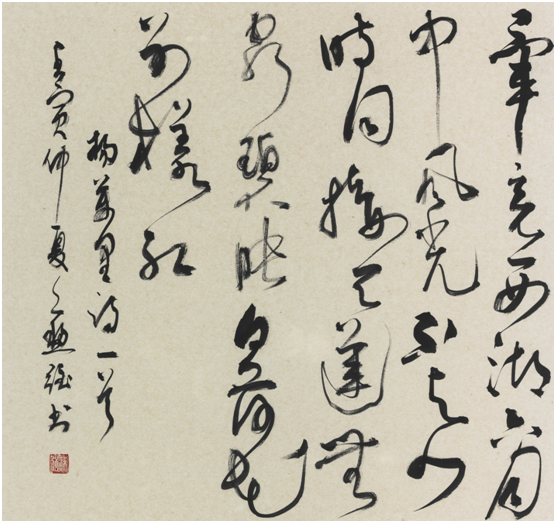 畢竟西湖六月
中風光不與四
時同接天蓮無
窮碧映日荷花
別樣紅
楊萬里詩一首
壬寅仲夏書